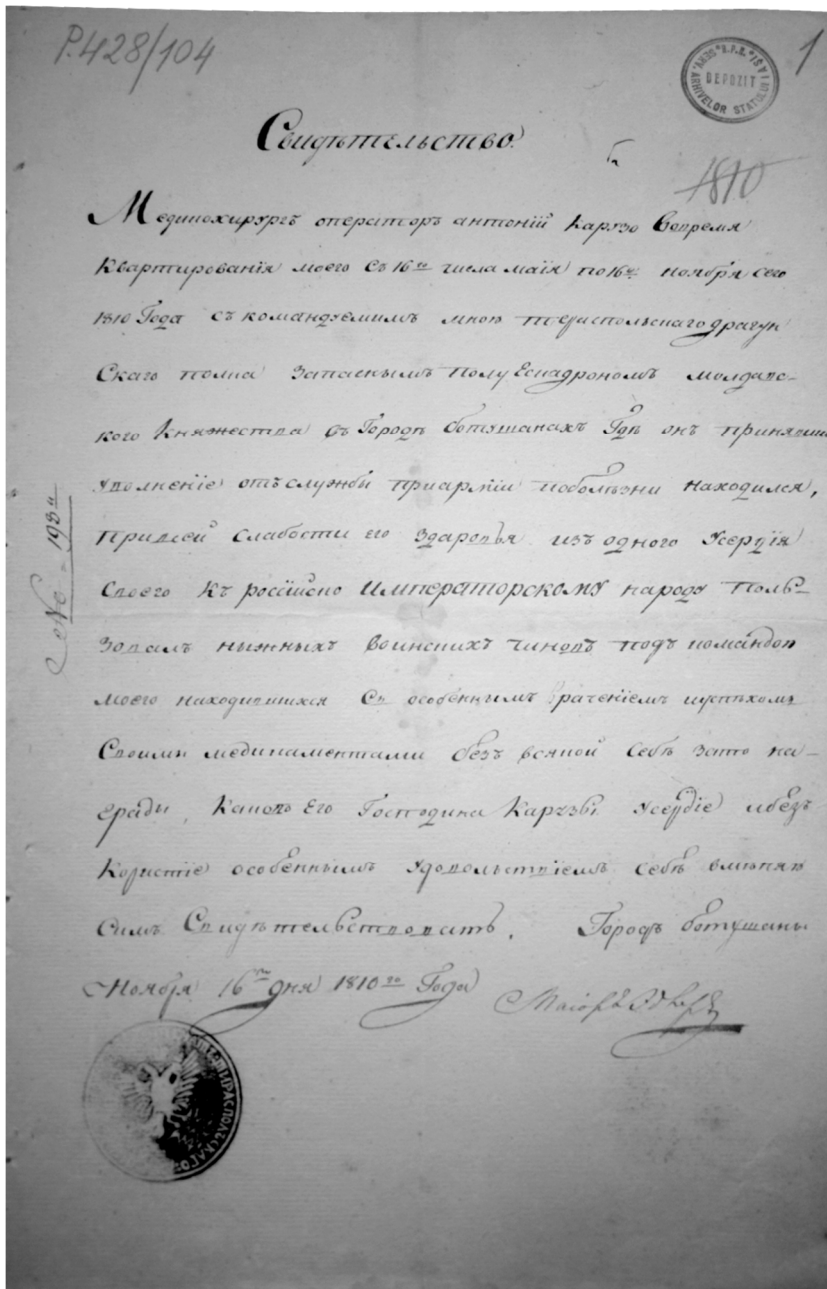 P.428/104
1
ARHIVELOR STATULUI IAȘI
DEPOZIT
Свидѣтельство.
1810
Медикохирургъ операторъ антоній Каразо Вовремя
Квартированія моего Съ 16го числа маія по 16е ноября сего
1810 Года съ командуемимъ мною тираспольскаго драгун
Скаго полка Запаснымъ полуЕскадрономъ молдавс-
кого Княжества въ Городѣ ботушанахъ Гдѣ онъ принявши
уволненіе отъ службы приарміи поболѣзни находился,
При всей слабости его здаровья изъ одного Усердія
Своего Къ россійско Императорскому народу Поль-
зовалъ ныжныхъ воинскихъ чиновъ подъ командою
моего находившихся Съ особеннымъ враченіемъ иуспѣхомъ
Своими медикаментами безъ всякой Себѣ зато на-
гради, Каковъ Его Господина Каразы Усердіе ибезъ
Користіе особеннымъ Удовольствіемъ себѣ вмѣняя
Симъ Свидѣтельствовать. Городъ ботушаны
Ноября 16го дня 1810го Года
Маіоръ
№ 193й
ТИРАСПОЛЬСКАГО